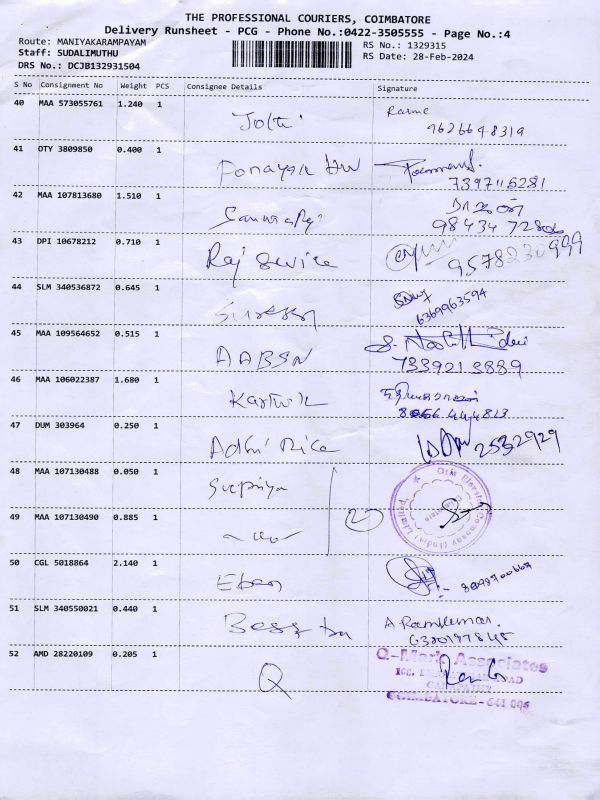 THE PROFESSIONAL COURIERS, COIMBATORE
Delivery Runsheet - PCG - Phone No.:0422-3505555 - Page No.:4
Route: MANIYAKARAMPAYAM
RS No.: 1329315
Staff: SUDALIMUTHU
RS Date: 28-Feb-2024
DRS No.: DCJB132931504
S No Consignment No Weight PCS Consignee Details Signature
40 MAA 573055761 1.240 1
9626648319
41 OTY 3809850 0.400 1
7397116281
42 MAA 107813680 1.510 1
98434 72806
43 DPI 10678212 0.710 1 Raj Service
9578230999
44 SLM 340536872 0.645 1
6369963594
45 MAA 109564652 0.515 1 AABSN
7339213889
46 MAA 106022387 1.680 1 Kartvik
47 DUM 303964 0.250 1 Adhi Rice 2532929
48 MAA 107130488 0.050 1 Supriya
49 MAA 107130490 0.885 1
Otis Elevator Company (India) Limited
50 CGL 5018864 2.140 1 Eben
8098700667
51 SLM 340550021 0.440 1 A Ramkumar.
52 AMD 28220109 0.205 1 Q
Q-Mark Associates
COIMBATORE-641 006